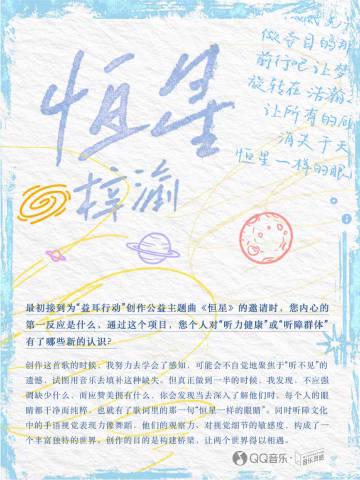 做夺目的那
前行吧让梦
旋转在浩瀚
让所有的
消失于天
恒星一样的眼
恒星
梓渝
最初接到为“益耳行动”创作公益主题曲《恒星》的邀请时，您内心的
第一反应是什么，通过这个项目，您个人对“听力健康”或“听障群体”
有了哪些新的认识？
创作这首歌的时候，我努力去学会了感知，可能会不自觉地聚焦于“听不见”的
遗憾，试图用音乐去填补这种缺失。但真正做到一半的时候，我发现，不应强
调缺少什么，而应赞美拥有什么。你会发现当去深入了解他们时，每个人的眼
睛都干净而纯粹，也就有了歌词里的那一句“恒星一样的眼睛”。同时听障文化
中的手语视觉表现力像舞蹈，他们的观察力、对视觉细节的敏感度，构成了一
个丰富独特的世界。创作的目的是构建桥梁，让两个世界得以相遇。
QQ音乐